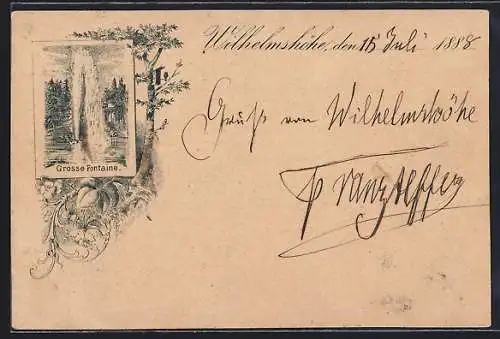 Wilhelmshöhe, den 15 Juli 1888
Grosse Fontaine.
Gruß von Wilhelmshöhe
Franz